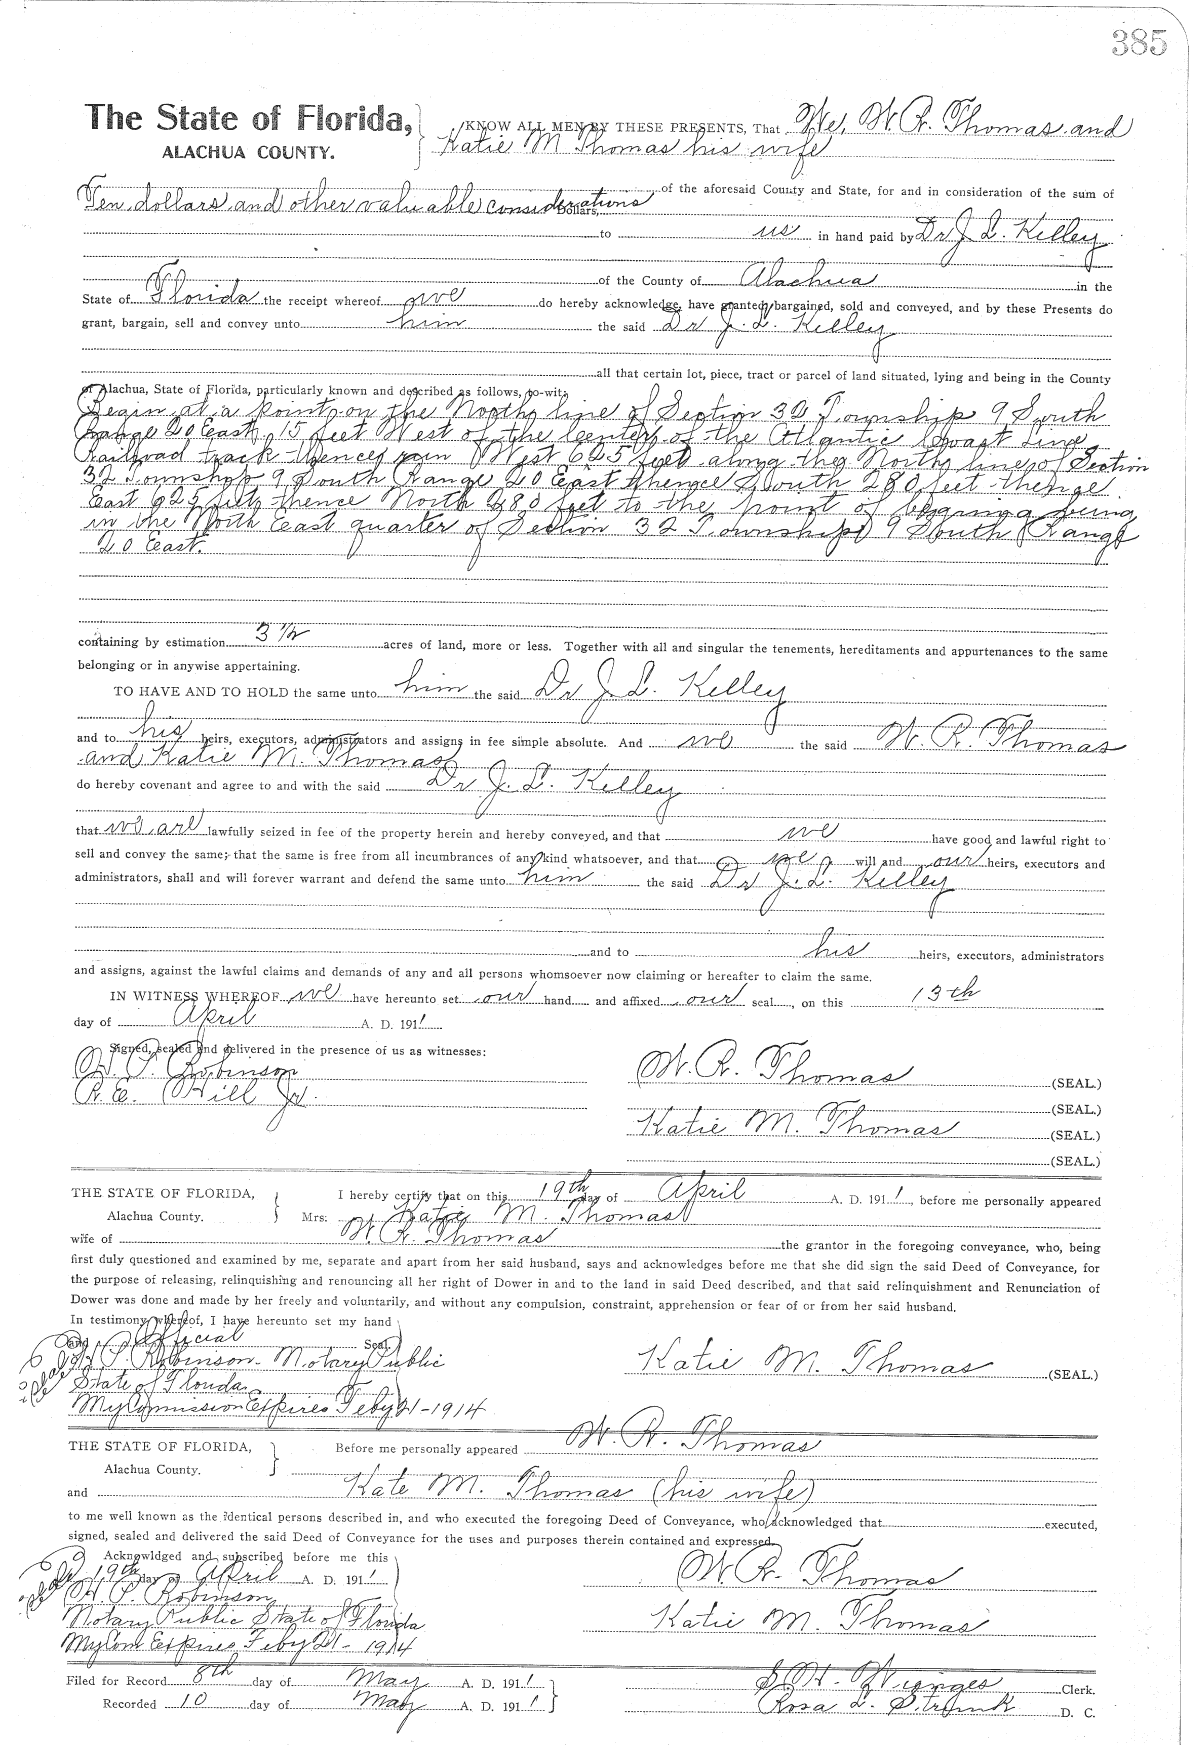 385
The State of Florida,
ALACHUA COUNTY.
KNOW ALL MEN BY THESE PRESENTS, That We, W. R. Thomas and
Katie M Thomas his wife
of the aforesaid County and State, for and in consideration of the sum of
Ten dollars and other valuable considerations Dollars,
to us in hand paid by Dr J. L. Kelley
of the County of Alachua in the
State of Florida the receipt whereof we do hereby acknowledge, have granted, bargained, sold and conveyed, and by these Presents do
grant, bargain, sell and convey unto him the said Dr J. L. Kelley
all that certain lot, piece, tract or parcel of land situated, lying and being in the County
of Alachua, State of Florida, particularly known and described as follows, to-wit:
Begin at a point on the North line of Section 32 Township 9 South
Range 20 East, 15 feet West of the Center of the Atlantic Coast Line
Railroad track thence run West 625 feet along the North line of Section
32 Township 9 South Range 20 East thence South 280 feet thence
East 625 feet thence North 280 feet to the point of being
in the North East quarter of Section 32 Township 9 South Range
20 East.
containing by estimation 3 1/2 acres of land, more or less. Together with all and singular the tenements, hereditaments and appurtenances to the same
belonging or in anywise appertaining.
TO HAVE AND TO HOLD the same unto him the said Dr J. L. Kelley
and to his heirs, executors, administrators and assigns in fee simple absolute. And we the said W. R. Thomas
and Katie M. Thomas
do hereby covenant and agree to and with the said Dr J. L. Kelley
that we are lawfully seized in fee of the property herein and hereby conveyed, and that we have good and lawful right to
sell and convey the same; that the same is free from all incumbrances of any kind whatsoever, and that we will and our heirs, executors and
administrators, shall and will forever warrant and defend the same unto him the said Dr J. L. Kelley
and to his heirs, executors, administrators
and assigns, against the lawful claims and demands of any and all persons whomsoever now claiming or hereafter to claim the same.
IN WITNESS WHEREOF we have hereunto set our hand and affixed our seal, on this 13th
day of April A. D. 1911
Signed, sealed and delivered in the presence of us as witnesses:
H. P. Robinson
R. E. Hill Jr.
W. R. Thomas (SEAL.)
(SEAL.)
Katie M. Thomas (SEAL.)
(SEAL.)
THE STATE OF FLORIDA,
Alachua County.
I hereby certify that on this 19th day of April A. D. 1911, before me personally appeared
Mrs. Katie M. Thomas
wife of W. R. Thomas the grantor in the foregoing conveyance, who, being
first duly questioned and examined by me, separate and apart from her said husband, says and acknowledges before me that she did sign the said Deed of Conveyance, for
the purpose of releasing, relinquishing and renouncing all her right of Dower in and to the land in said Deed described, and that said relinquishment and Renunciation of
Dower was done and made by her freely and voluntarily, and without any compulsion, constraint, apprehension or fear of or from her said husband.
In testimony whereof, I have hereunto set my hand
and Official Seal.
H. P. Robinson - Notary Public
State of Florida
My Commission Expires Feby 21-1914
Katie M. Thomas (SEAL.)
THE STATE OF FLORIDA,
Alachua County.
Before me personally appeared W. R. Thomas
and Kate M. Thomas (his wife)
to me well known as the identical persons described in, and who executed the foregoing Deed of Conveyance, who acknowledged that executed,
signed, sealed and delivered the said Deed of Conveyance for the uses and purposes therein contained and expressed.
Acknowldged and subscribed before me this
19th day of April A. D. 1911
H. P. Robinson
Notary Public State of Florida
My Com Expires Feby 21- 1914
W. R. Thomas
Katie M. Thomas
Filed for Record 8th day of May A. D. 1911
Recorded 10 day of May A. D. 1911
S. H. Wienges Clerk.
Rosa L. D. C.